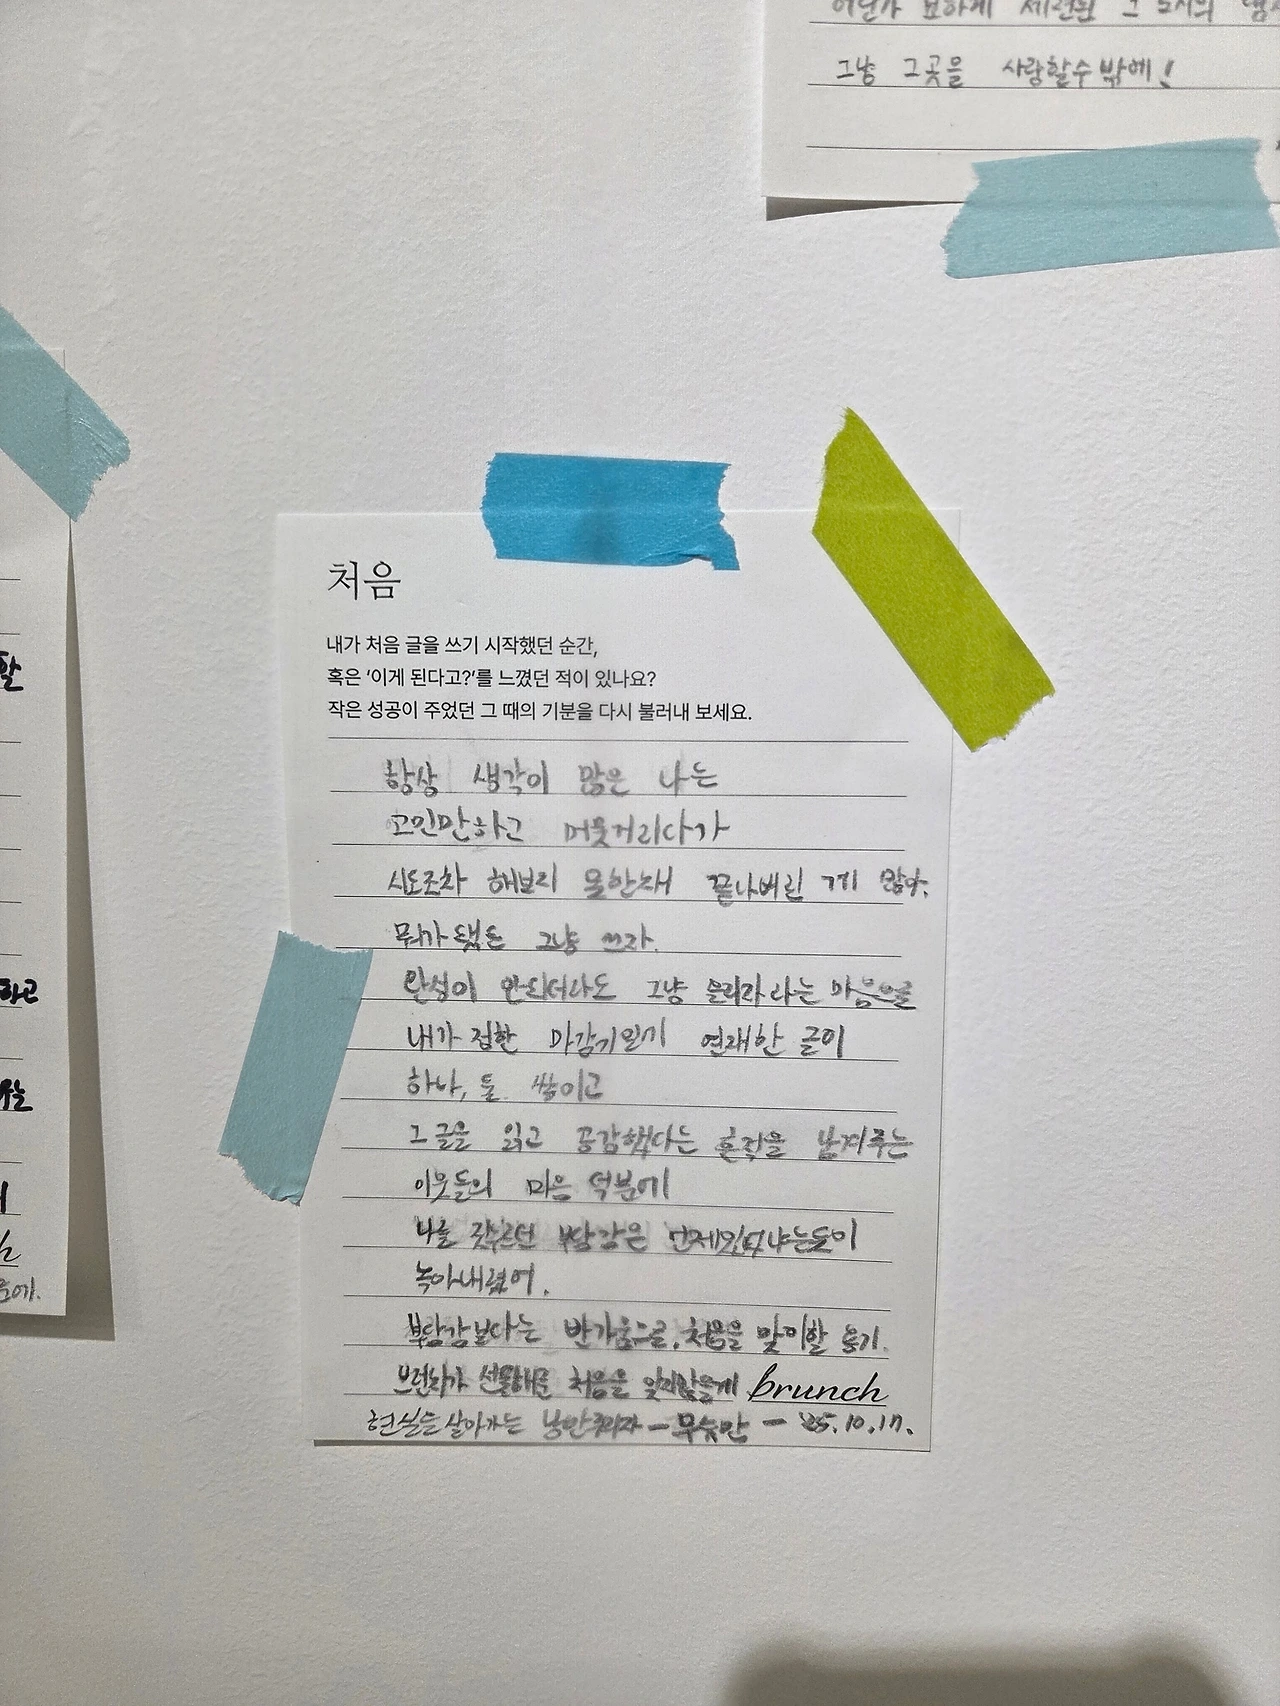 그냥 그곳을 사랑할수밖에!
할
하고
처음
내가 처음 글을 쓰기 시작했던 순간,
혹은 ‘이게 된다고?’를 느꼈던 적이 있나요?
작은 성공이 주었던 그 때의 기분을 다시 불러내 보세요.
항상 생각이 많은 나는
고민만하고 머뭇거리다가
시도조차 해보지 못한채 끝나버린 게 많아.
뭐가됐든 그냥 쓰자.
완성이 안되더라도 그냥 올리자라는 마음으로
내가 접한 마감기일기 연재한 글이
하나, 둘 쌓이고
그 글을 읽고 공감했다는 흔적을 남겨주는
이웃들의 마음 덕분에
나를 짓누르던 부담감은 언제있었냐는듯이
녹아내렸어.
부담감보다는 반가움으로, 처음을 맞이할 용기.
브런치가 선물해준 처음을 잊지않을게 brunch
현실을 살아가는 낭만주의자 - 무슈만 - '25.10.17.